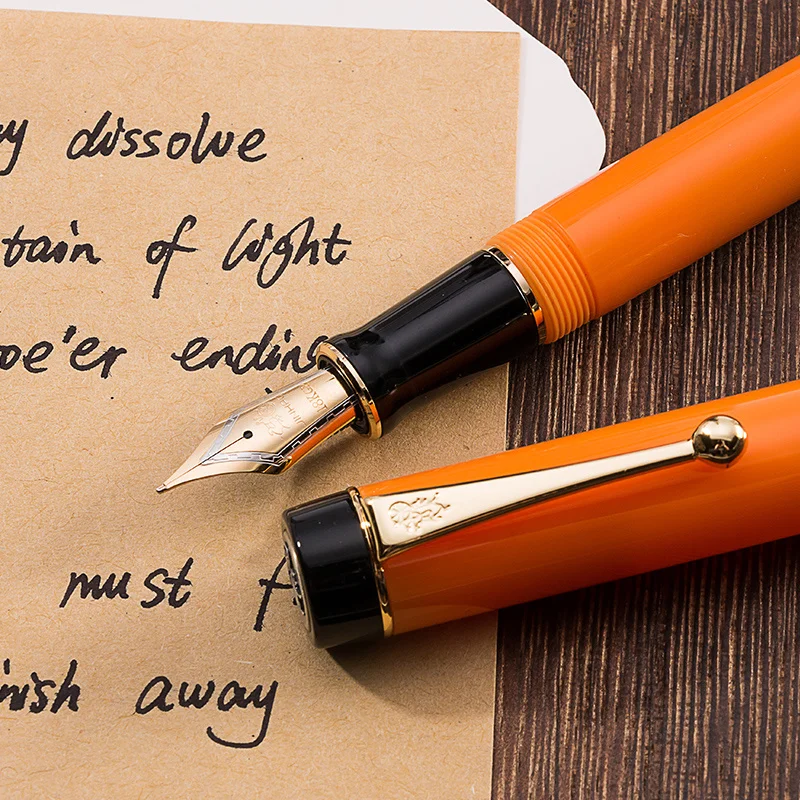 dissolve
tain of light
oe'er ending
must f
nish away
18KGP